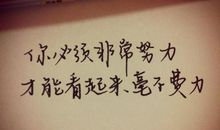 你必须非常努力
才能看起来毫不费力